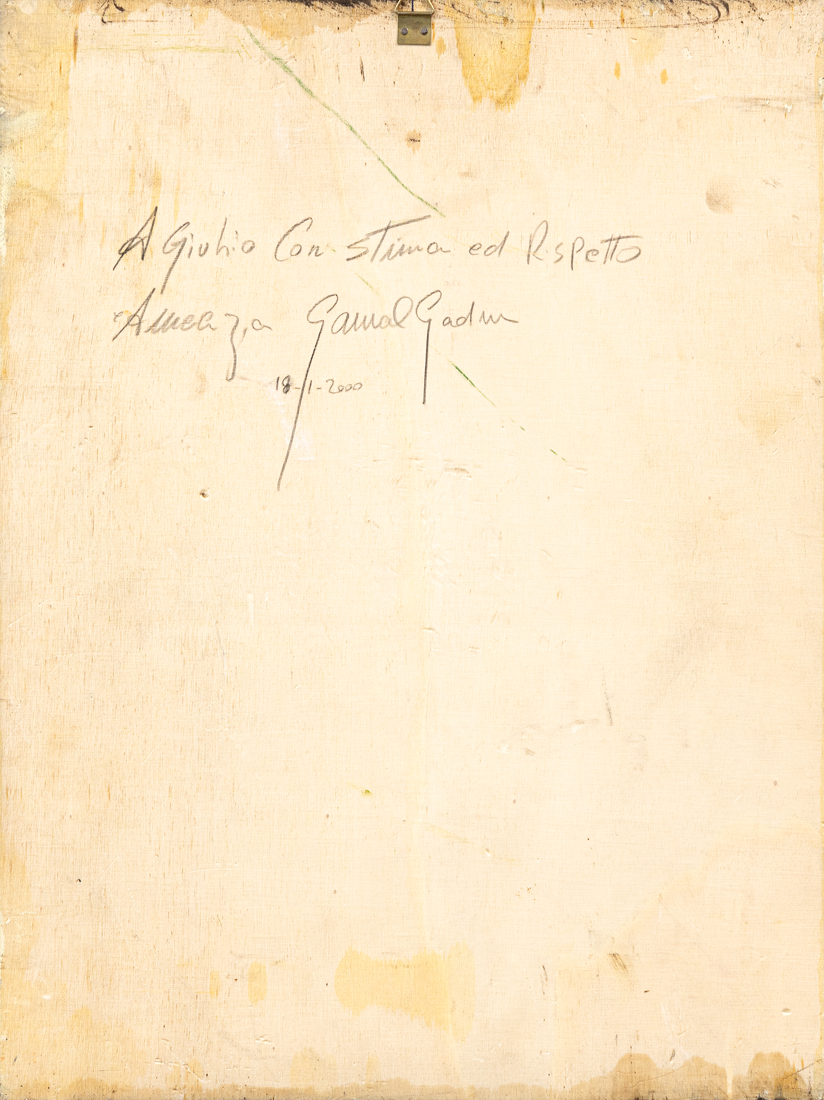 A Giulio Con stima ed Rispetto
Amcizia Gamal Gadm
18-1-2000